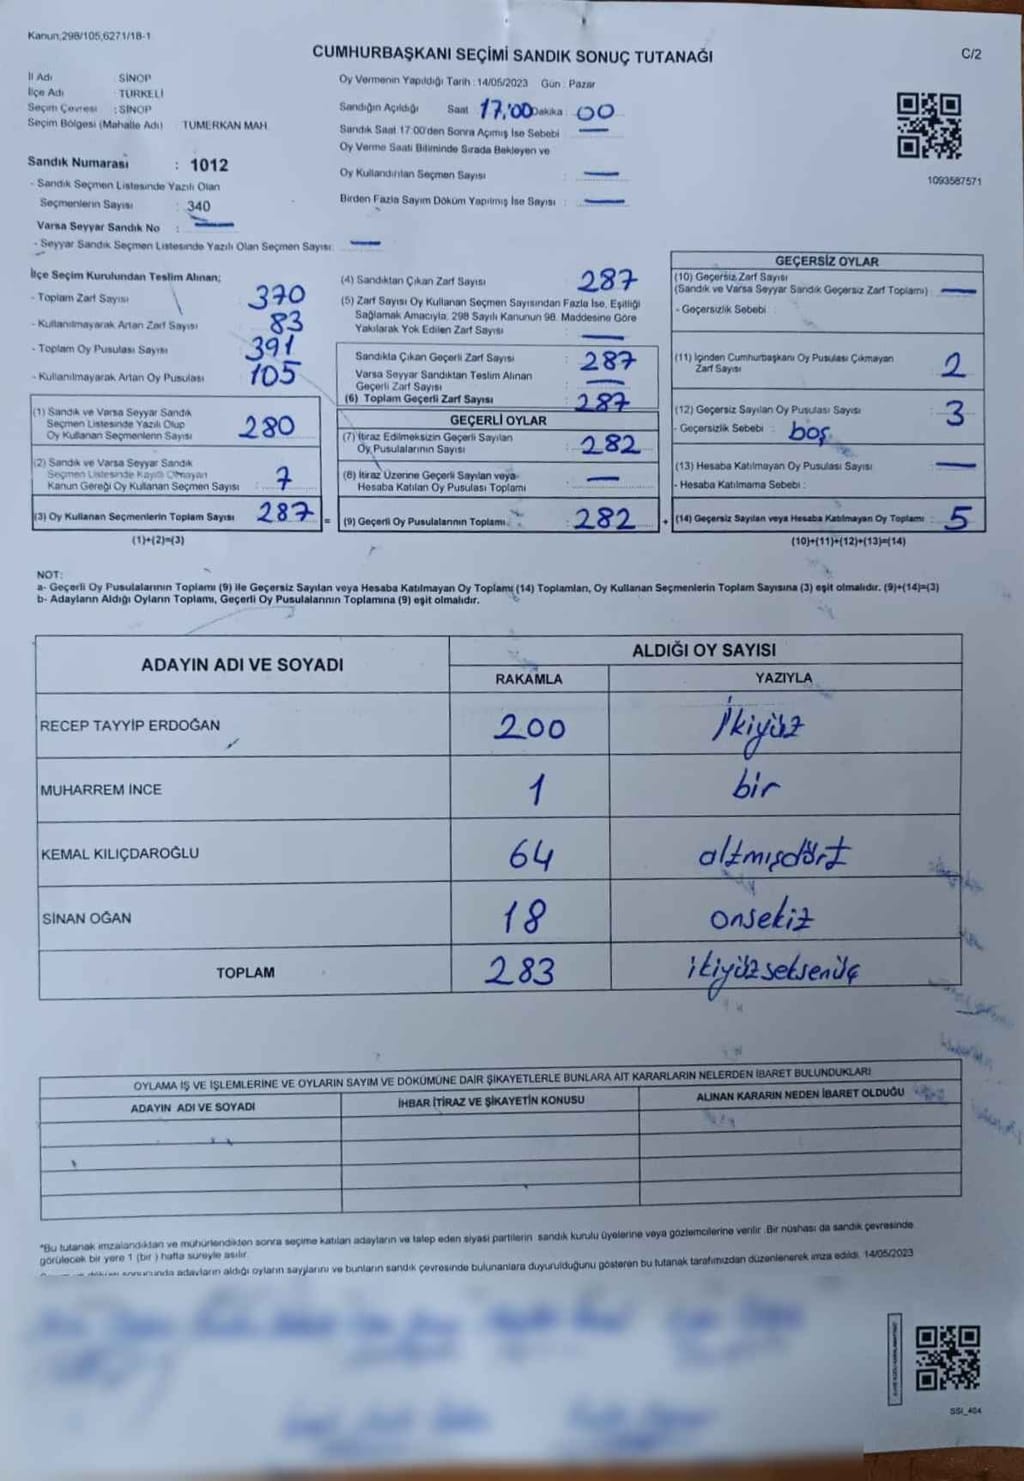 Kanun,298/105,6271/18-1
CUMHURBAŞKANI SEÇİMİ SANDIK SONUÇ TUTANAĞI
C/2
İl Adı : SİNOP
İlçe Adı : TÜRKELİ
Seçim Çevresi : SİNOP
Seçim Bölgesi (Mahalle Adı) TÜMERKAN MAH.
Oy Vermenin Yapıldığı Tarih : 14/05/2023 Gün : Pazar
Sandığın Açıldığı Saat 17:00 Dakika : 00
Sandık Saat 17:00'den Sonra Açımış İse Sebebi : —
Oy Verme Saati Bitiminde Sırada Bekleyen ve
Oy Kullandırılan Seçmen Sayısı : —
Birden Fazla Sayım Döküm Yapılmış İse Sayısı : —
1093587571
Sandık Numarası : 1012
- Sandık Seçmen Listesinde Yazılı Olan
Seçmenlerin Sayısı : 340
Varsa Seyyar Sandık No : —
- Seyyar Sandık Seçmen Listesinde Yazılı Olan Seçmen Sayısı: —
İlçe Seçim Kurulundan Teslim Alınan;
- Toplam Zarf Sayısı 370
- Kullanılmayarak Artan Zarf Sayısı 83
- Toplam Oy Pusulası Sayısı 391
- Kullanılmayarak Artan Oy Pusulası 105
(1) Sandık ve Varsa Seyyar Sandık
Seçmen Listesinde Yazılı Olup
Oy Kullanan Seçmenlerin Sayısı 280
(2) Sandık ve Varsa Seyyar Sandık
Seçmen Listesinde Kayıtlı Olmayan
Kanun Gereği Oy Kullanan Seçmen Sayısı : 7
(3) Oy Kullanan Seçmenlerin Toplam Sayısı 287 =
(1)+(2)=(3)
(4) Sandıktan Çıkan Zarf Sayısı 287
(5) Zarf Sayısı Oy Kullanan Seçmen Sayısından Fazla İse, Eşitliği
Sağlamak Amacıyla, 298 Sayılı Kanunun 98. Maddesine Göre
Yakılarak Yok Edilen Zarf Sayısı : —
Sandıkta Çıkan Geçerli Zarf Sayısı : 287
Varsa Seyyar Sandıktan Teslim Alınan
Geçerli Zarf Sayısı : —
(6) Toplam Geçerli Zarf Sayısı : 287
GEÇERLİ OYLAR
(7) İtiraz Edilmeksizin Geçerli Sayılan
Oy Pusulalarının Sayısı : 282
(8) İtiraz Üzerine Geçerli Sayılan veya
Hesaba Katılan Oy Pusulası Toplamı : —
(9) Geçerli Oy Pusulalarının Toplamı : 282 +
GEÇERSİZ OYLAR
(10) Geçersiz Zarf Sayısı
(Sandık ve Varsa Seyyar Sandık Geçersiz Zarf Toplamı) : —
- Geçersizlik Sebebi :
(11) İçinden Cumhurbaşkanı Oy Pusulası Çıkmayan
Zarf Sayısı : 2
(12) Geçersiz Sayılan Oy Pusulası Sayısı : 3
- Geçersizlik Sebebi : boş
(13) Hesaba Katılmayan Oy Pusulası Sayısı : —
- Hesaba Katılmama Sebebi :
(14) Geçersiz Sayılan veya Hesaba Katılmayan Oy Toplamı : 5
(10)+(11)+(12)+(13)=(14)
NOT:
a- Geçerli Oy Pusulalarının Toplamı (9) ile Geçersiz Sayılan veya Hesaba Katılmayan Oy Toplamı (14) Toplamları, Oy Kullanan Seçmenlerin Toplam Sayısına (3) eşit olmalıdır. (9)+(14)=(3)
b- Adayların Aldığı Oyların Toplamı, Geçerli Oy Pusulalarının Toplamına (9) eşit olmalıdır.
ADAYIN ADI VE SOYADI
ALDIĞI OY SAYISI
RAKAMLA YAZIYLA
RECEP TAYYİP ERDOĞAN 200 İkiyüz
MUHARREM İNCE 1 bir
KEMAL KILIÇDAROĞLU 64 altmışdört
SİNAN OĞAN 18 onsekiz
TOPLAM 283 ikiyüzseksenüç
OYLAMA İŞ VE İŞLEMLERİNE VE OYLARIN SAYIM VE DÖKÜMÜNE DAİR ŞİKAYETLERLE BUNLARA AİT KARARLARIN NELERDEN İBARET BULUNDUKLARI
ADAYIN ADI VE SOYADI İHBAR İTİRAZ VE ŞİKAYETİN KONUSU ALINAN KARARIN NEDEN İBARET OLDUĞU
*Bu tutanak imzalandıktan ve mühürlendikten sonra seçime katılan adayların ve talep eden siyasi partilerin sandık kurulu üyelerine veya gözlemcilerine verilir. Bir nüshası da sandık çevresinde
görülecek bir yere 1 (bir ) hafta süreyle asılır.
adayların aldığı oyların sayılarını ve bunların sandık çevresinde bulunanlara duyurulduğunu gösteren bu tutanak tarafımızdan düzenlenerek imza edildi. 14/05/2023
SSI_404